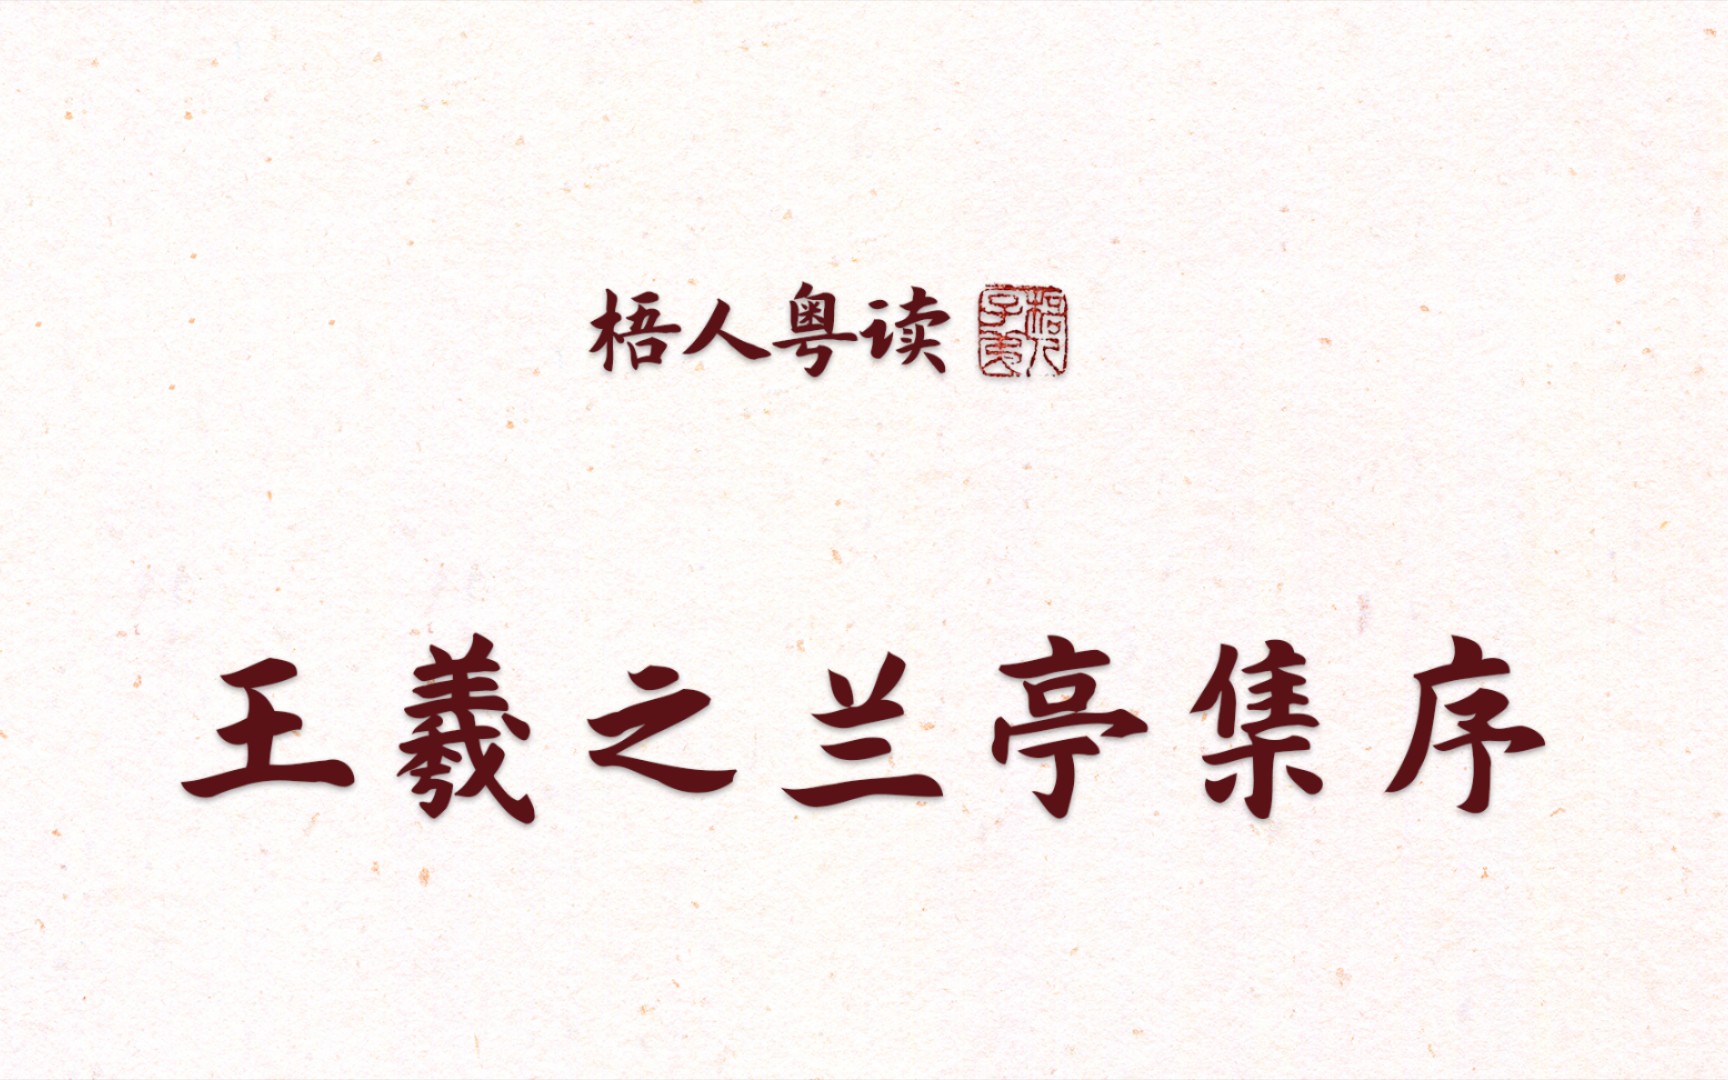 梧人粤读
王羲之兰亭集序